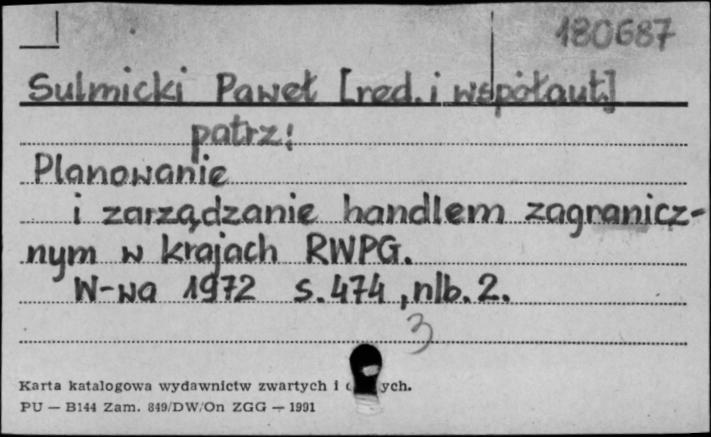 180687
Sulmicki Paweł [red. i współaut.]
patrz:
Planowanie
i zarządzanie handlem zagranicz-
nym w krajach RWPG.
W-wa 1972 s. 474, nlb. 2.
3
Karta katalogowa wydawnictw zwartych i
PU — B144 Zam. 849/DW/On ZGG — 1991